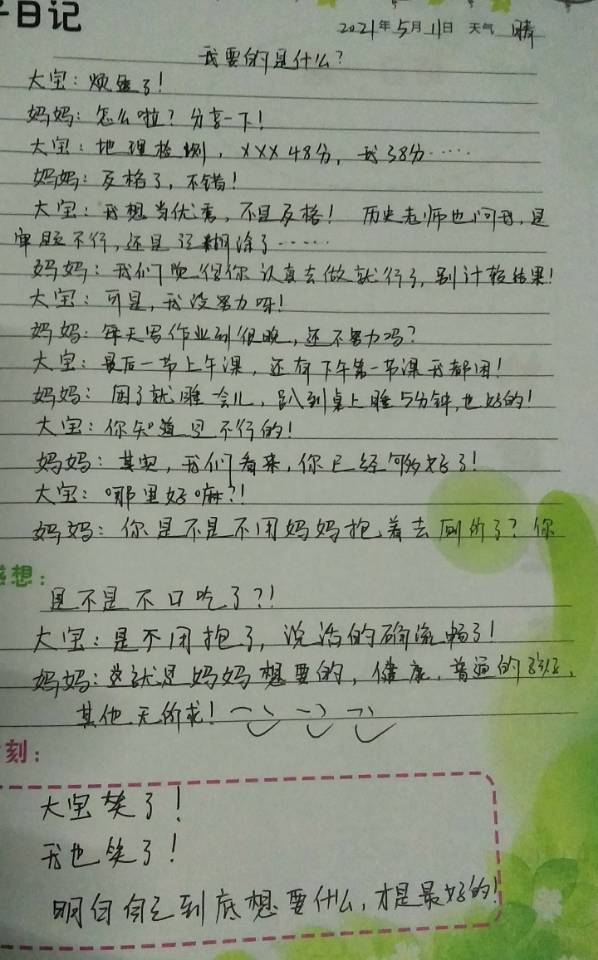 日记
2021年5月11日 天气 晴
我要的是什么?
大宝:烦死了!
妈妈:怎么啦?分享一下!
大宝:地理检测,XXX48分,我38分……
妈妈:及格了,不错!
大宝:我想当优秀,不是及格!历史老师也问我,是
审题不行,还是还糊涂了……
妈妈:我们觉得你认真去做就行了,别计较结果!
大宝:可是,我没努力呀!
妈妈:每天写作业到很晚,还不努力吗?
大宝:最后一节上午课,还有下午第一节课我都困!
妈妈:困了就睡会儿,趴到桌上睡5分钟,也好的!
大宝:你知道是不行的!
妈妈:其实,我们看来,你已经够好了!
大宝:哪里好嘛?!
妈妈:你是不是不用妈妈抱着去厕所了?你
感想:
是不是不口吃了?!
大宝:是不用抱了,说话的确流畅了!
妈妈:这就是妈妈想要的,健康,普通的孩子,
其他无所求!
刻:
大宝笑了!
我也笑了!
明白自己到底想要什么,才是最好的!